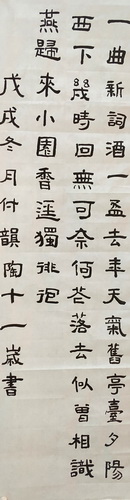 一曲新詞酒一盃去年天氣舊亭臺夕陽
西下幾時回無可奈何花落去似曾相識
燕歸來小園香逕獨徘徊
戊戌冬月付韻陶十一歲書